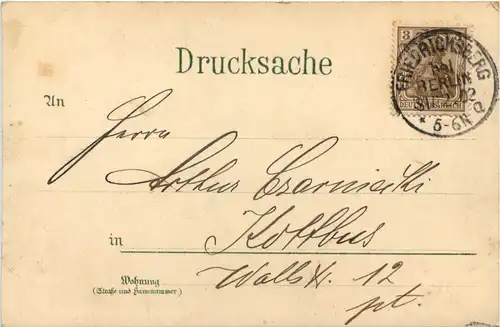 Drucksache
3
FRIEDRICHSBERG
BERLIN
5-6N
DEUTSCHES REICH
An
Herrn
Arthur Czarniecki
in Kottbus
Wohnung
(Straße und Hausnummer.)
Wallstr. 12
pt.